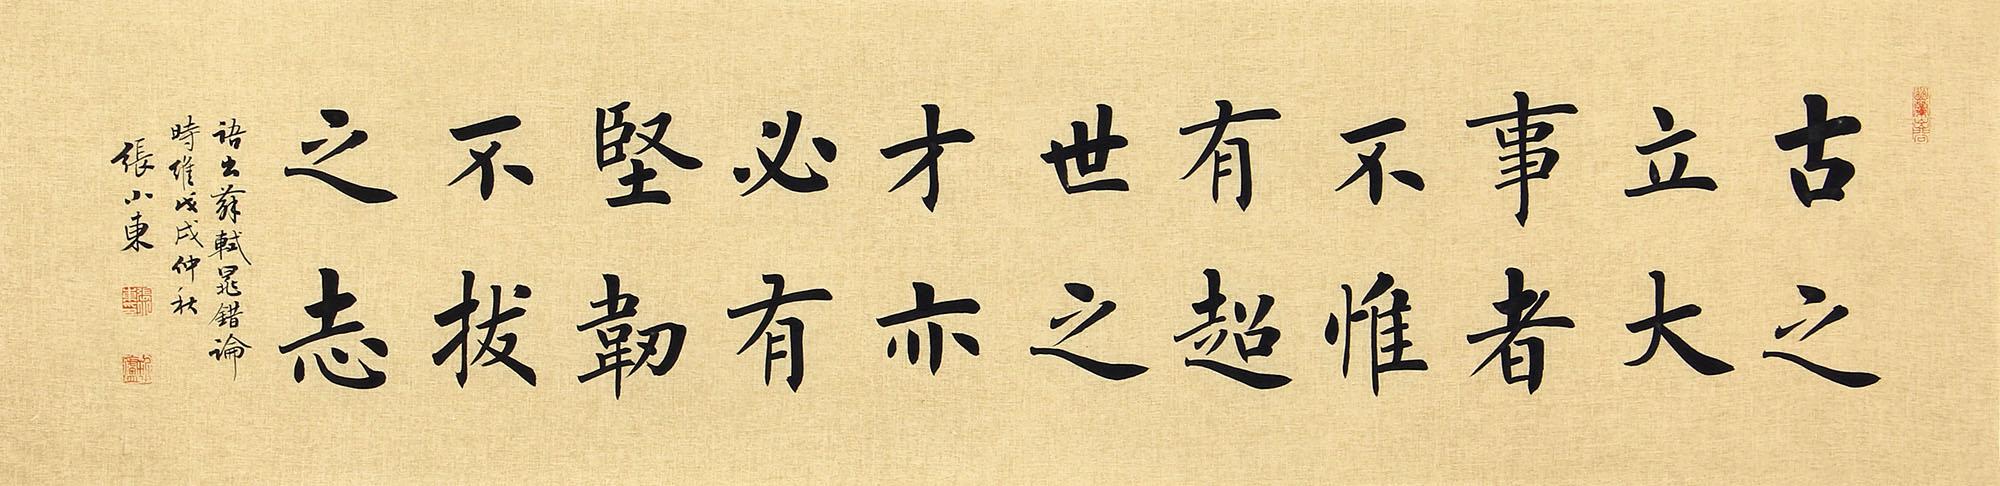 古之
立大
事者
不惟
有超
世之
才亦
必有
堅韌
不拔
之志
語出蘇軾晁錯論
時維戊戌仲秋
張小東